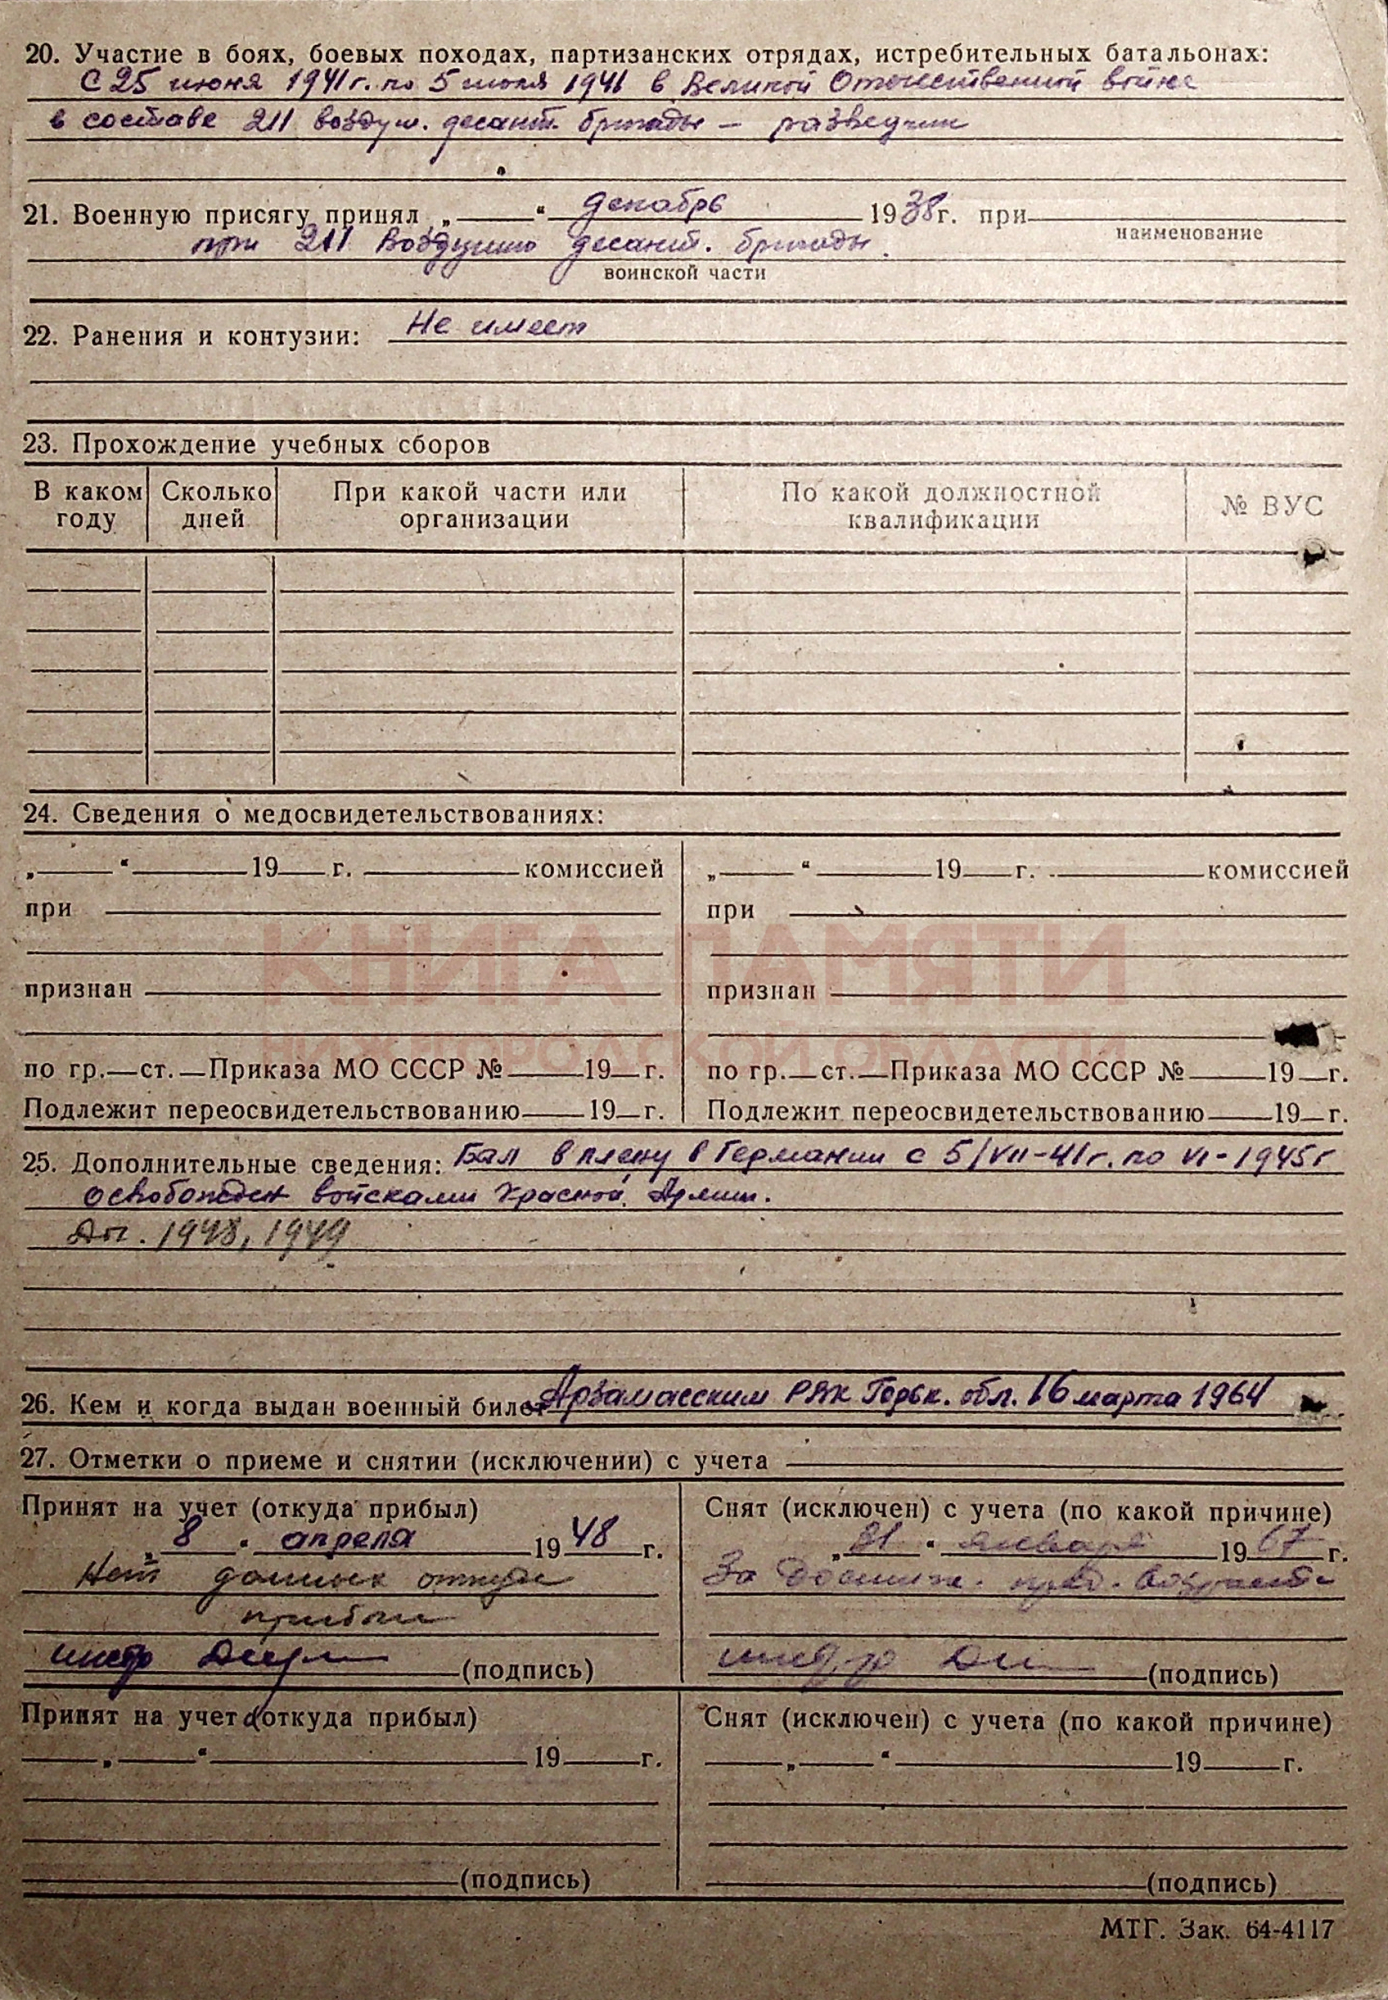 20. Участие в боях, боевых походах, партизанских отрядах, истребительных батальонах:
С 25 июня 1941г. по 5 июля 1941 в Великой Отечественной войне
в составе 211 воздуш. десант. бригады – разведчик
21. Военную присягу принял „ “ декабрь 1938г. при
наименование
при 211 Воздушно десант. бригады.
воинской части
22. Ранения и контузии: Не имеет
23. Прохождение учебных сборов
В каком году Сколько дней При какой части или организации По какой должностной квалификации № ВУС
24. Сведения о медосвидетельствованиях:
„ “ 19 г. комиссией „ “ 19 г. комиссией
при при
КНИГА ПАМЯТИ
признан признан
НИЖЕГОРОДСКОЙ ОБЛАСТИ
по гр. ст. Приказа МО СССР № 19 г. по гр. ст. Приказа МО СССР № 19 г.
Подлежит переосвидетельствованию 19 г. Подлежит переосвидетельствованию 19 г.
25. Дополнительные сведения: Был в плену в Германии с 5/VII-41г. по VI-1945г
освобожден войсками Красной Армии.
1948, 1949
26. Кем и когда выдан военный билет Арзамасским РВК Горьк. обл. 16 марта 1964
27. Отметки о приеме и снятии (исключении) с учета
Принят на учет (откуда прибыл) Снят (исключен) с учета (по какой причине)
„8“ апреля 1948 г. „31“ января 1967 г.
Нет данных откуда За достиж. пред. возраста
прибыл
(подпись) (подпись)
Принят на учет (откуда прибыл) Снят (исключен) с учета (по какой причине)
„ “ 19 г. „ “ 19 г.
(подпись) (подпись)
МТГ. Зак. 64-4117